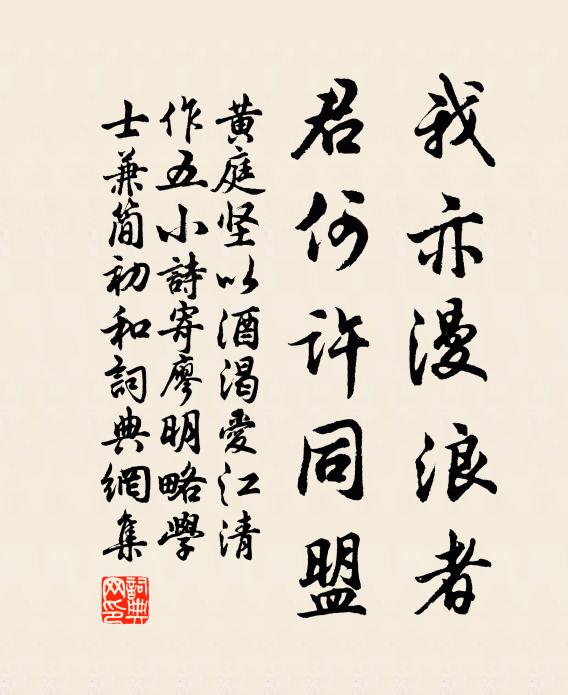 我亦漫浪者
君何许同盟
黄庭坚以酒渴爱江清
作五小詩寄廖明略學
士兼简初和詞典網集
詞典
网印